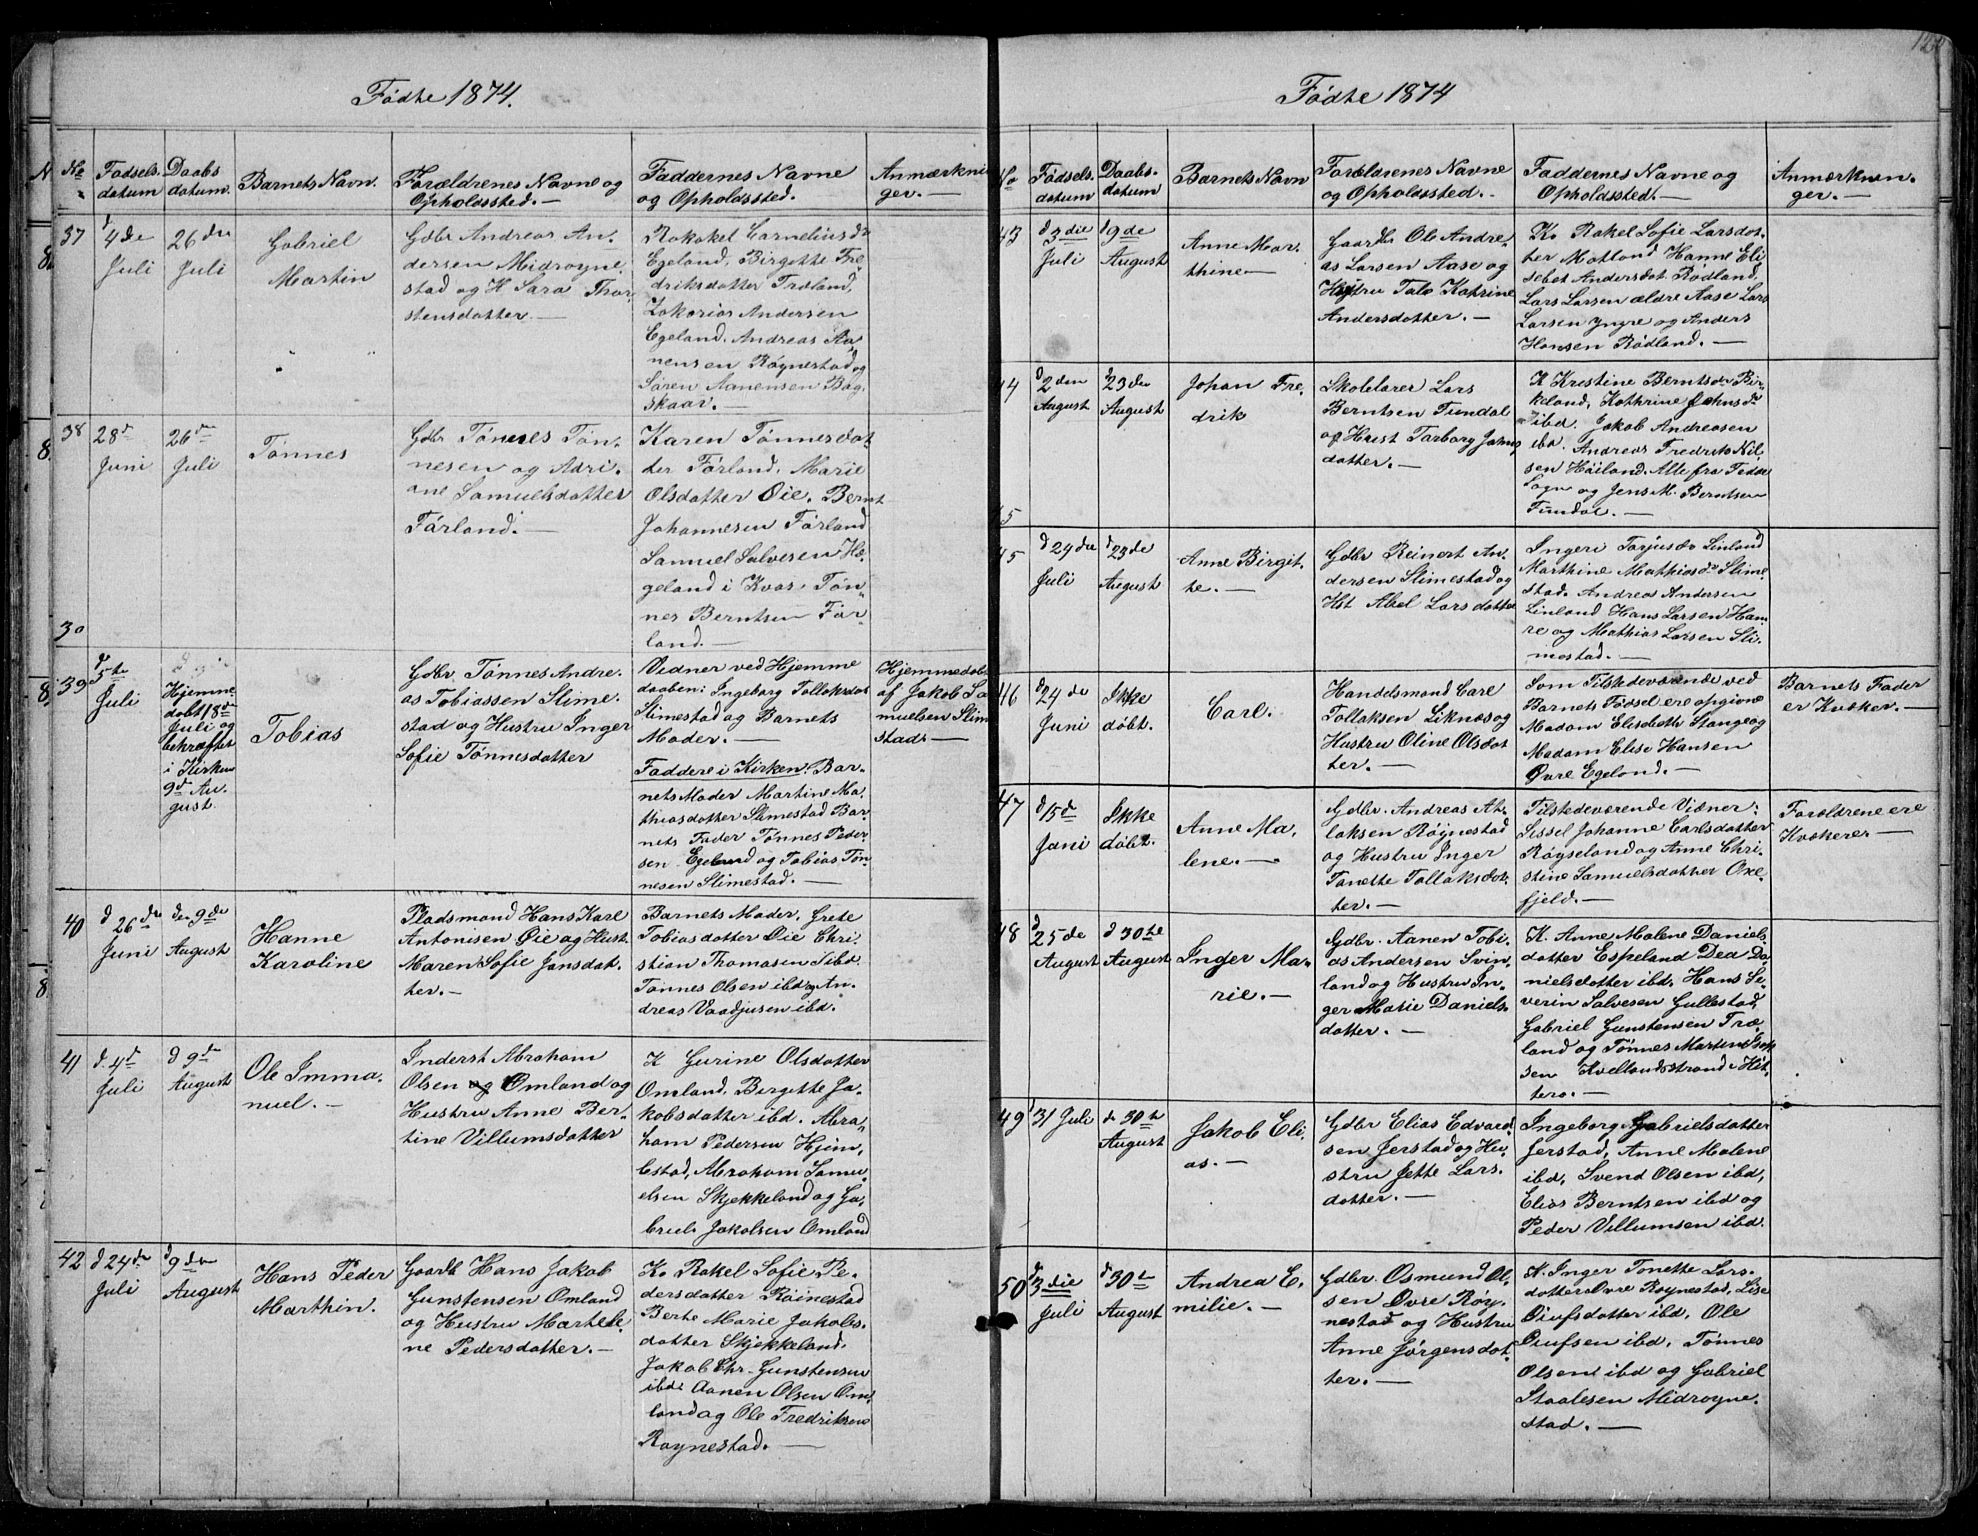 Fødte 1874.
No
Fødsels-
datum
Daabs
datum.
Barnets Navn.
Forældrenes Navne og
Opholdssted. —
Faddernes Navne
og Opholdssted.
Anmærknin
ger. —
37
4de
Juli
26de
Juli
Gabriel
Martin
Gdbr Andreas An-
dersen Midrøyne
stad og H Sara Thor
stensdatter. —
Cornelius da
Egeland, Birgitte Fre-
driksdatter Træland,
Zakarias Andersen
Egeland. Andreas Aa-
nensen Røynestad og
Søren Aanensen Bog
skaar. —
38
28de
Juni
26de
Juli
Tønnes
Gdbr Tønnes Tøn-
nesen og Adri-
ane Samuelsdatter
Førland. —
Karen Tønnesdat-
der Førland. Marie
Olsdatter Øie. Bernt
Johannesen Førland
Samuel Salvesen Hæ-
geland i Kvas. Tøn-
nes Berntsen Før
land. —
39
5te
Juli
Hjemme
døbt 18de
Juli og
bekræftet
i Kirken
9de Au-
gust.
Tobias
Gdbr. Tønnes Andre-
as Tobiassen Slime-
stad og Hustru Inger
Sofie Tønnesdatter
Vidner ved Hjemme
daaben: Ingeborg Tollaksdat
Slimestad og Barnets
Moder. —
Faddere i Kirken: Bar-
nets Moder Martine Ma-
thiasdatter Slimestad Bar-
nets Fader Tønnes Peder-
sen Egeland og Tobias Tøn-
nesen Slimestad. —
Hjemmedøbt
af Jakob Sa
muelsen Slim
stad. —
40
d 26de
Juni
den 9de
August
Hanne
Karoline
Pladsmand Hans Karl
Antonisen Øie og Hust
Maren Sofie Jansdat-
ter. —
Barnets Moder, Grete
Tobiasdatter Øie Chri-
stian Thomasen ibd.
Tønnes Olsen ibd og An-
dreas Vaadjusen ibd.
41
d. 4de
Juli
d 9de
August
Ole Imma-
nuel. —
Inderst Abraham
Olsen og Omland og
Hustru Anne Ber-
tine Villumsdatter
K Gurine Olsdatter
Omland, Birgitte Ja-
kobsdatter ibd. Abra-
ham Pedersen Hjem-
bestad, Abraham Samu-
elsen Skjekkeland og Ga-
briel Jakobsen Omland
42
d 24de
Juli
d 9de
August
Hans Peder
Marthin.
Gaardb Hans Jakob
Gunstensen Omland
og Hustru Marthi-
ne Pedersdatter. —
K. Rakel Sofie Pe-
dersdatter Røinestad
Berte Marie Jakobs-
datter Skjekkeland.
Jakob Chr. Gunstensen
ibd. Aanen Olsen Om-
land og Ole Fredriksen
Røynestad. —
Fødte 1874
No
Fødsels-
datum
Daabs-
datum
Barnets Navn
Forældrenes Navne
og Opholdssted. —
Faddernes Navne og
Opholdssted. —
Anmærknin-
ger. —
43
d 3die
Juli
d 9de
August
Anne Mar-
thine —
Gaardbr Ole Andre-
as Larsen Aase og
Hustru Tale Katrine
Andersdatter. —
K. Rakel Sofie Larsdat-
ter Motland Hanne Eli
sebet Andersdat Rødland,
Lars Larsen ældre Aase Lars
Larsen yngre og Anders
Hansen Rødland. —
44
d 2den
August
d 23de
August
Johan Fre-
drik
Skolelærer Lars
Berntsen Tundal
og Hust Tarborg Johns
datter. —
K Kristine Berntsdr Bir-
keland, Kathrine Johnsda
ibd. Jakob Andreasen
ibd. Andreas Fredrik Nil-
sen Høiland. Alle fra Fedde
Sogn og Jens M. Berntsen
Tundal. —
45
d 24de
Juli
d 23de
August
Anne Birgit-
te. —
Gdbr Reinert An-
dersen Slimestad og
Hst Abel Larsdatter
Ingeri Torjusda Linland
Marthine Mathiasda Slime-
stad, Andrea Andersen
Linland Hans Larsen Ham-
re og Mathias Larsen Sli-
mestad. —
46
d 24de
Juni
Ikke
døbt.
Carl.
Handelsmand Carl
Tollaksen Liknæs og
Hustru Oline Olsdat
ter. —
Som Tilstedeværende ved
Barnets Fødsel ere opgivne
Madam Elisabeth Stange og
Madam Elise Hansen
Øvre Egeland. —
Barnets Fader
er Kvæker. —
47
d 15de
Juni
Ikke
døbt.
Anne Ma-
lene. —
Gdbr. Andreas At-
laksen Røynestad
og Hustru Inger
Tonette Tollaksdat-
ter. —
Tilstedeværende Vidner:
Sissel Johanne Carlsdatter
Røyseland og Anne Chri-
stine Samuelsdatter Oxe-
fjeld. —
Forældrene ere
Kvækerer —
48
d 25de
August
d 30te
August
Inger Ma-
rie. —
Gdbr. Aanen Tobi-
as Andersen Svin-
land og Hustru In-
ger Marie Daniels-
datter. —
K. Anne Malene Daniels
datter Espeland Dea Da-
nielsdatter ibd. Hans Se-
verin Salvesen Gullestad
Gabriel Gunstensen Træ-
land og Tønnes Martin
sen Kvellandstrand i Hit-
terø. —
49
31 Juli
d 30te
August
Jakob Eli-
as. —
Gdbr Elias Edvard
sen Jerstad og Hu-
stru Jette Lars-
datter. —
Ingeborg Gabrielsdatter
Jerstad, Anne Malene
ibd, Svend Olsen ibd,
Elias Berntsen ibd og
Peder Villumsen ibd.
50
d 3die
Juli
d 30te
August
Andrea E-
milie. —
Gdbr. Osmund Ol-
sen Øvre Røy-
nestad og Hustru
Anne Jørgensdat-
ter. —
K. Inger Tonette Lars-
datter Øvre Røynestad, Lise
Oiufsdatter ibd, Ole
Oiufsen ibd, Tønnes
Olsen ibd og Gabriel
Staalesen Midrøyne-
stad. —